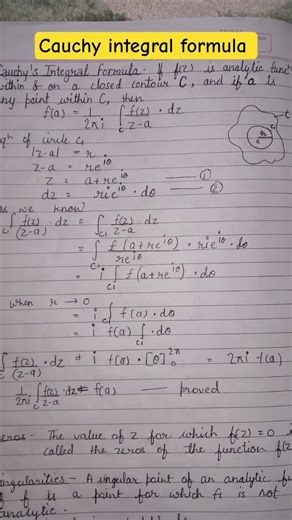 Cauchy integral formula
Cauchy's Integral Formula - If f(z) is analytic func
within & on a closed contour C, and if a is
any point within C, then
f(a) = 1/2πi ∫c f(z)/z-a · dz
eqⁿ of circle C1
|z-a| = r
z-a = re^iθ
z = a+re^iθ ——— ①
dz = rie^iθ · dθ ——— ②
As we know
∫c f(z)/(z-a) dz = ∫c1 f(z)/z-a · dz
= ∫c1 f(a+re^iθ)/re^iθ · rie^iθ · dθ
= i ∫c1 f(a+re^iθ) · dθ
when r → 0
= i ∫c1 f(a) · dθ
= i f(a) ∫c1 · dθ
∫c f(z)/(z-a) · dz = i f(a) · [θ]₀^2π = 2πi f(a)
1/2πi ∫c f(z)/z-a · dz = f(a) —— proved
zeros - The value of z for which f(z) = 0 i
called the zeros of the function f(z)
singularities - A singular point of an analytic fu
f is a point for which it is not
analytic.